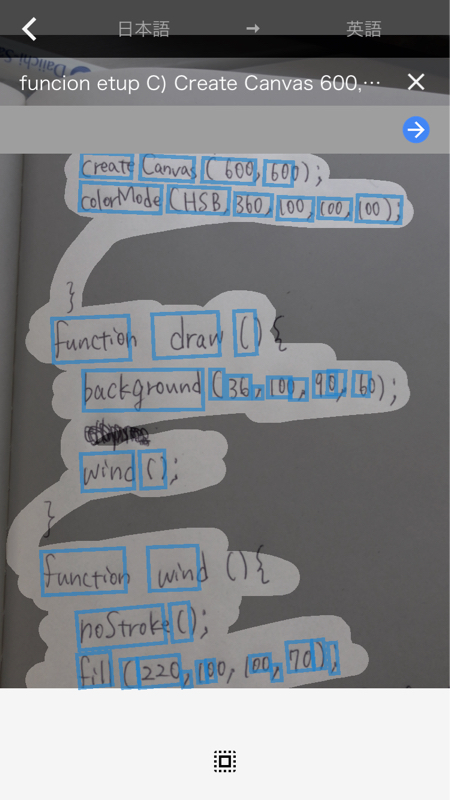 日本語 → 英語
Daiichi-Sa
funcion etup C) Create Canvas 600,...
create Canvas (600, 600);
colorMode (HSB, 360, 100, 100, 100);
}
function draw () {
background (36, 100, 90, 60);
wind ();
}
function wind () {
noStroke ();
fill (220, 100, 100, 70);